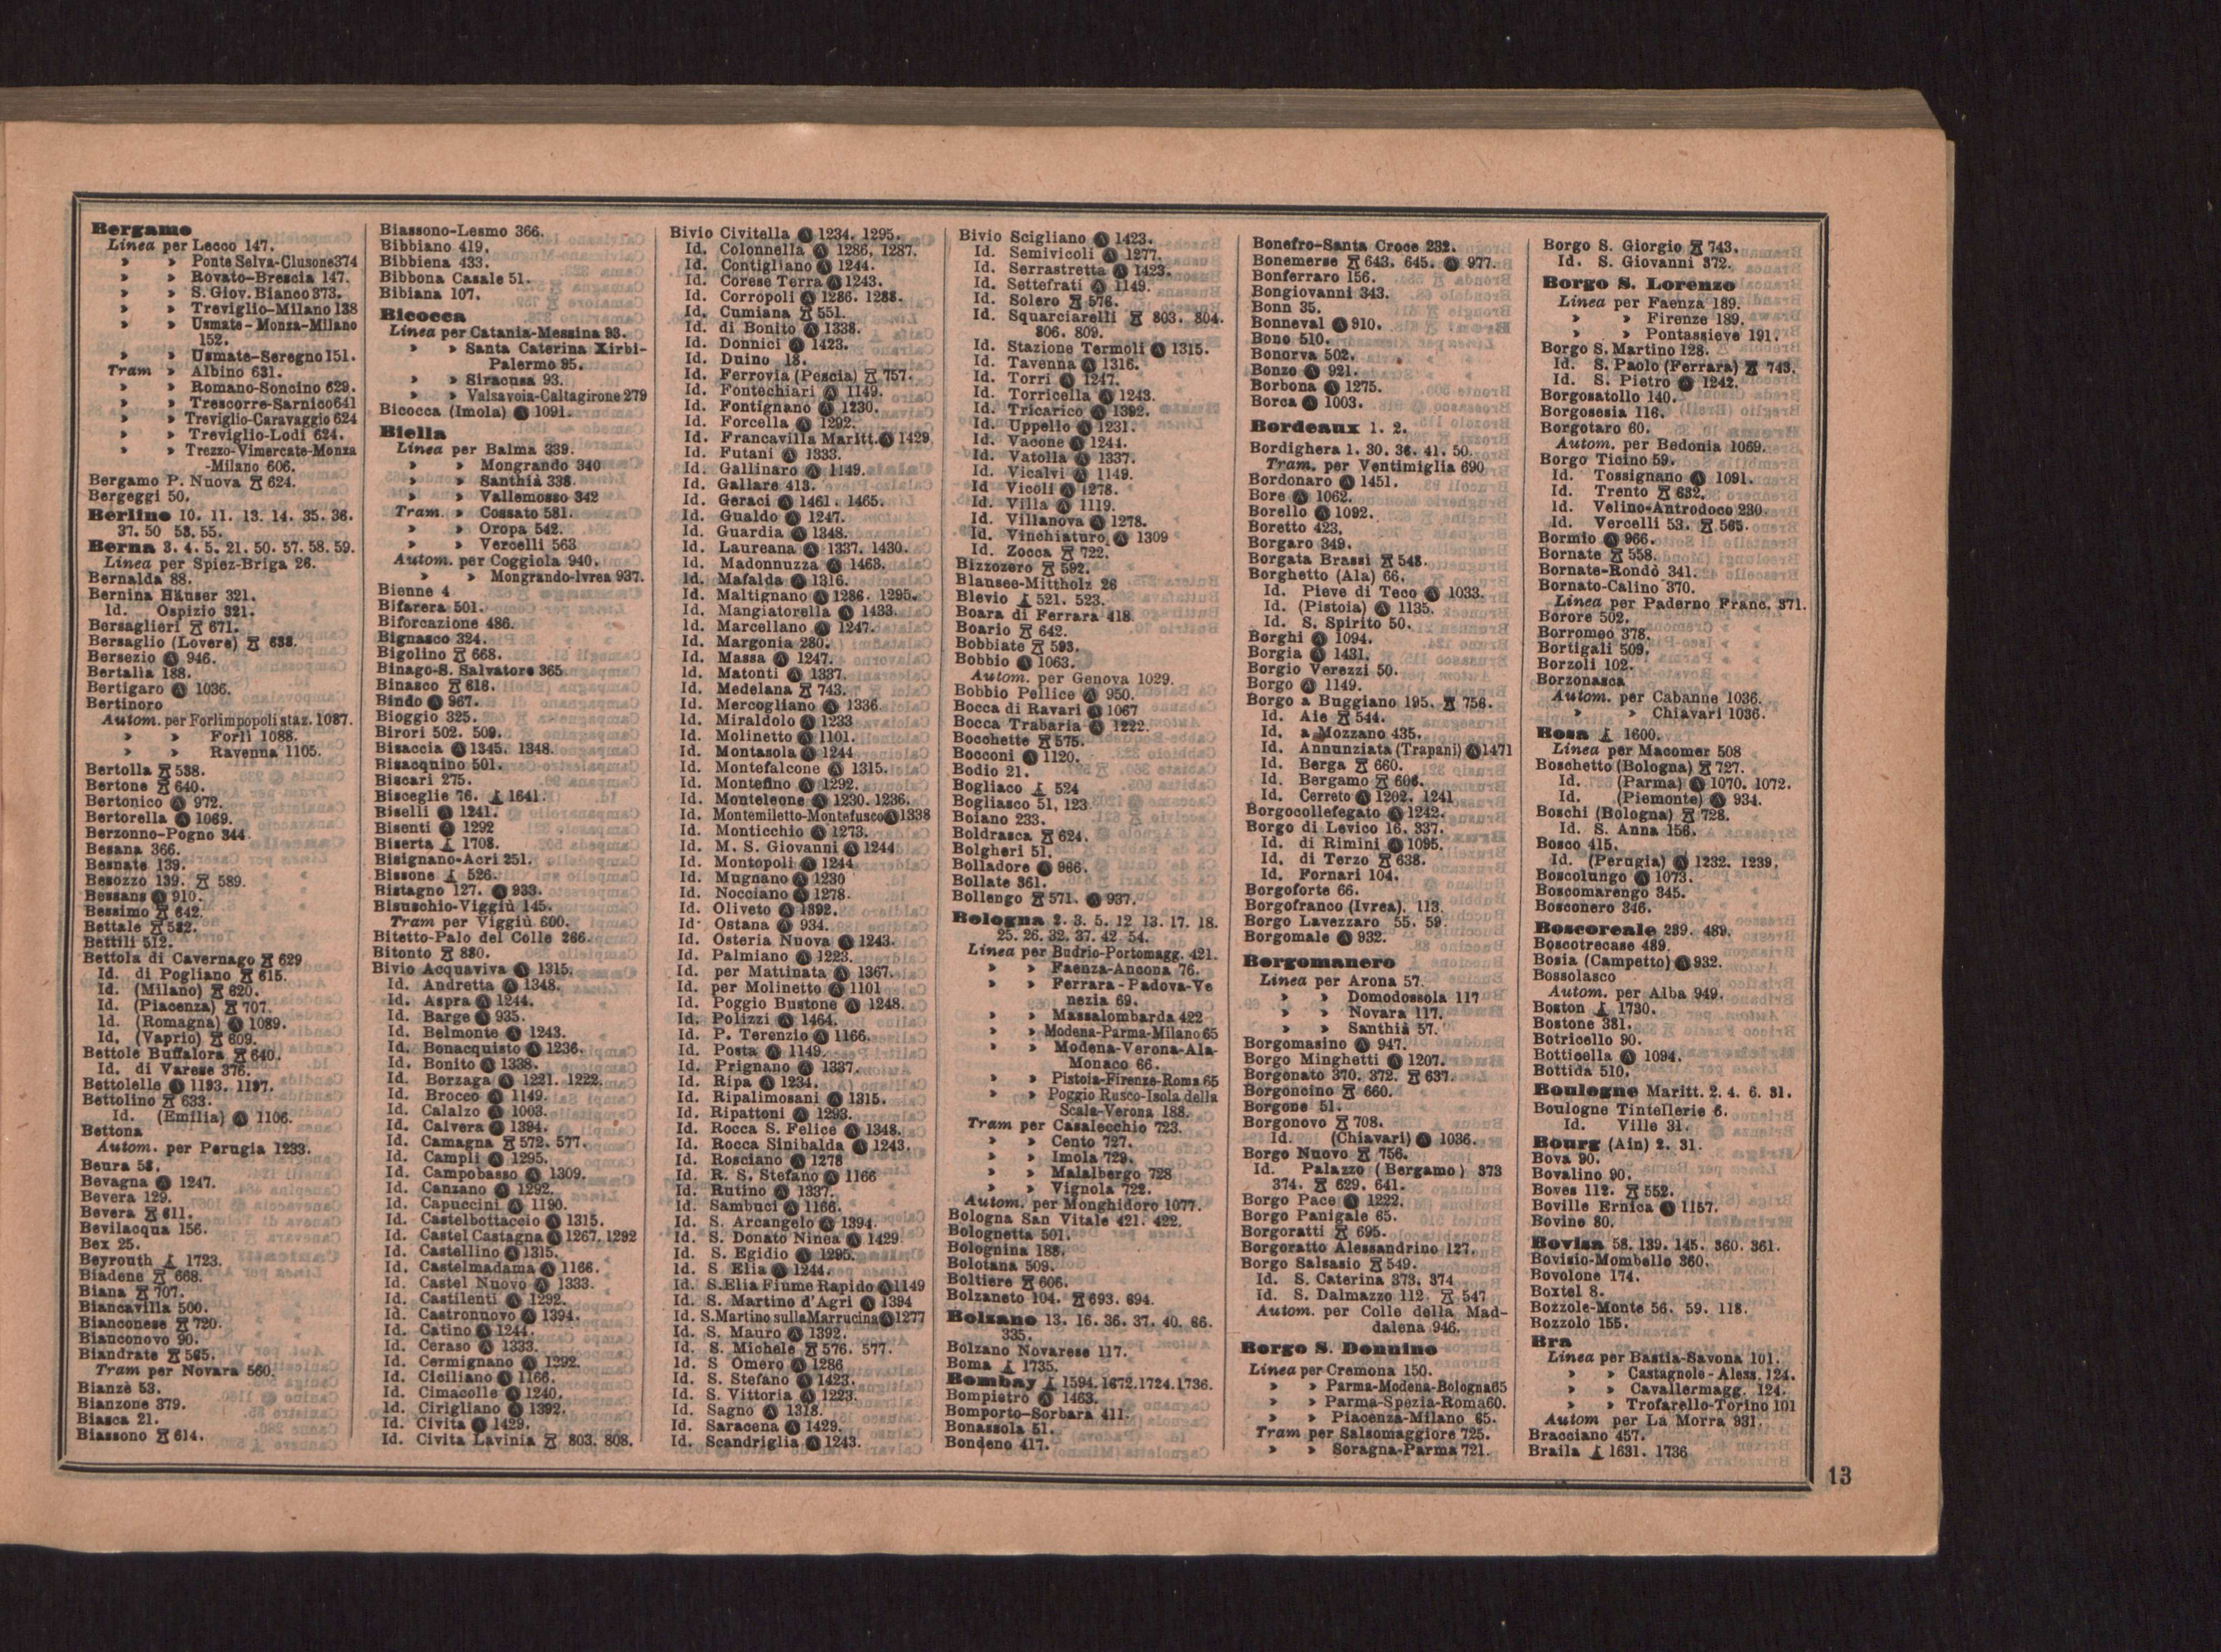 Bergamo
Linea per Lecco 147.
» » Ponte Selva-Clusone 374
» » Rovato-Brescia 147.
» » S. Giov. Bianco 373.
» » Treviglio-Milano 138
» » Usmate-Monza-Milano
152.
» » Usmate-Seregno 151.
Tram » Albino 631.
» » Romano-Soncino 629.
» » Trescorre-Sarnico 641
» » Treviglio-Caravaggio 624
» » Treviglio-Lodi 624.
» » Trezzo-Vimercate-Monza
-Milano 606.
Bergamo P. Nuova 624.
Bergeggi 50.
Berlino 10. 11. 13. 14. 35. 36.
37. 50 53. 55.
Berna 3. 4. 5. 21. 50. 57. 58. 59.
Linea per Spiez-Briga 26.
Bernalda 88.
Bernina Häuser 321.
Id. Ospizio 321.
Bersaglieri 671.
Bersaglio (Lovere) 638.
Bersezio 946.
Bertalia 188.
Bertigaro 1036.
Bertinoro
Autom. per Forlimpopoli staz. 1087.
» » Forlì 1088.
» » Ravenna 1105.
Bertolla 538.
Bertone 640.
Bertonico 972.
Bertorella 1069.
Berzonno-Pogno 344
Besana 366.
Besnate 139.
Besozzo 139. 589.
Bessans 910.
Bessimo 642.
Bettale 582.
Bettili 512.
Bettola di Cavernago 629
Id. di Pogliano 615.
Id. (Milano) 620.
Id. (Piacenza) 707.
Id. (Romagna) 1089.
Id. (Vaprio) 609.
Bettole Buffalora 640.
Id. di Varese 376.
Bettolelle 1193. 1197.
Bettolino 633.
Id. (Emilia) 1106.
Bettona
Autom. per Perugia 1233.
Beura 58.
Bevagna 1247.
Bevera 129.
Bevera 611.
Bevilacqua 156.
Bex 25.
Beyrouth 1723.
Biadene 668.
Biana 707.
Biancavilla 500.
Bianconese 720.
Bianconovo 90.
Biandrate 565.
Tram per Novara 560.
Bianzè 53.
Bianzone 379.
Biasca 21.
Biassono 614.
Biassono-Lesmo 366.
Bibbiano 419.
Bibbiena 433.
Bibbona Casale 51.
Bibiana 107.
Bicocca
Linea per Catania-Messina 93.
» » Santa Caterina Xirbi-
Palermo 95.
» » Siracusa 93.
» » Valsavoia-Caltagirone 279
Bicocca (Imola) 1091.
Biella
Linea per Balma 339.
» » Mongrando 340
» » Santhià 338.
» » Vallemosso 342
Tram. » Cossato 581.
» » Oropa 542.
» » Vercelli 563
Autom. per Coggiola 940.
» » Mongrando-Ivrea 937.
Bienne 4
Bifarera 501.
Biforcazione 486.
Bignasco 324.
Bigolino 668.
Binago-S. Salvatore 365
Binasco 618.
Bindo 967.
Bioggio 325.
Birori 502. 509.
Bisaccia 1345. 1348.
Bisacquino 501.
Biscari 275.
Bisceglie 76. 1641.
Biselli 1241.
Bisenti 1292
Biserta 1708.
Bisignano-Acri 251.
Bissone 526.
Bistagno 127. 933.
Bisuschio-Viggiù 145.
Tram per Viggiù 600.
Bitetto-Palo del Colle 266.
Bitonto 880.
Bivio Acquaviva 1315.
Id. Andretta 1348.
Id. Aspra 1244.
Id. Barge 935.
Id. Belmonte 1243.
Id. Bonacquisto 1236.
Id. Bonito 1338.
Id. Borzaga 1221. 1222.
Id. Brocco 1149.
Id. Calalzo 1003.
Id. Calvera 1394.
Id. Camagna 572. 577.
Id. Campli 1295.
Id. Campobasso 1309.
Id. Canzano 1292.
Id. Capuccini 1190.
Id. Castelbottaccio 1315.
Id. Castel Castagna 1267. 1292
Id. Castellino 1315.
Id. Castelmadama 1166.
Id. Castel Nuovo 1333.
Id. Castilenti 1292.
Id. Castronuovo 1394.
Id. Catino 1244.
Id. Ceraso 1333.
Id. Cermignano 1292.
Id. Ciciliano 1166.
Id. Cimacolle 1240.
Id. Cirigliano 1392.
Id. Civita 1429.
Id. Civita Lavinia 803. 808.
Bivio Civitella 1234. 1295.
Id. Colonnella 1286, 1287.
Id. Contigliano 1244.
Id. Corese Terra 1243.
Id. Corropoli 1286. 1288.
Id. Cumiana 551.
Id. di Bonito 1338.
Id. Donnici 1423.
Id. Duino 18.
Id. Ferrovia (Pescia) 757.
Id. Fontechiari 1149.
Id. Fontignano 1230.
Id. Forcella 1292.
Id. Francavilla Maritt. 1429
Id. Futani 1333.
Id. Gallinaro 1149.
Id. Gallare 413.
Id. Geraci 1461. 1465.
Id. Gualdo 1247.
Id. Guardia 1348.
Id. Laureana 1337. 1430.
Id. Madonnuzza 1463.
Id. Mafalda 1316.
Id. Maltignano 1286. 1295.
Id. Mangiatorella 1433.
Id. Marcellano 1247.
Id. Margonia 280.
Id. Massa 1247.
Id. Matonti 1337.
Id. Medelana 743.
Id. Mercogliano 1336.
Id. Miraldolo 1233
Id. Molinetto 1101.
Id. Montasola 1244
Id. Montefalcone 1315.
Id. Montefino 1292.
Id. Monteleone 1230. 1236.
Id. Montemiletto-Montefusco 1338
Id. Monticchio 1273.
Id. M. S. Giovanni 1244
Id. Montopoli 1244
Id. Mugnano 1230
Id. Nocciano 1278.
Id. Oliveto 1392.
Id. Ostana 934.
Id. Osteria Nuova 1243.
Id. Palmiano 1223.
Id. per Mattinata 1367.
Id. per Molinetto 1101
Id. Poggio Bustone 1248.
Id. Polizzi 1464.
Id. P. Terenzio 1166.
Id. Posta 1149.
Id. Prignano 1337.
Id. Ripa 1234.
Id. Ripalimosani 1315.
Id. Ripattoni 1293.
Id. Rocca S. Felice 1348.
Id. Rocca Sinibalda 1243.
Id. Rosciano 1278
Id. R. S. Stefano 1166
Id. Rutino 1337.
Id. Sambuci 1166.
Id. S. Arcangelo 1394.
Id. S. Donato Ninea 1429
Id. S. Egidio 1295.
Id. S Elia 1244.
Id. S. Elia Fiume Rapido 1149
Id. S. Martino d'Agri 1394
Id. S. Martino sulla Marrucina 1277
Id. S. Mauro 1392.
Id. S. Michele 576. 577.
Id. S Omero 1286
Id. S. Stefano 1423.
Id. S. Vittoria 1223.
Id. Sagno 1318.
Id. Saracena 1429.
Id. Scandriglia 1243.
Bivio Scigliano 1423.
Id. Semivicoli 1277.
Id. Serrastretta 1423.
Id. Settefrati 1149.
Id. Solero 576.
Id. Squarciarelli 803. 804.
806. 809.
Id. Stazione Termoli 1315.
Id. Tavenna 1316.
Id. Torri 1247.
Id. Torricella 1243.
Id. Tricarico 1392.
Id. Uppello 1231.
Id. Vacone 1244.
Id. Vatolla 1337.
Id. Vicalvi 1149.
Id Vicoli 1278.
Id. Villa 1119.
Id. Villanova 1278.
Id. Vinchiaturo 1309
Id. Zocca 722.
Bizzozero 592.
Blausee-Mittholz 26
Blevio 521. 523.
Boara di Ferrara 418
Boario 642.
Bobbiate 593.
Bobbio 1063.
Autom. per Genova 1029.
Bobbio Pellice 950.
Bocca di Ravari 1067
Bocca Trabaria 1222.
Bocchette 575.
Bocconi 1120.
Bodio 21.
Bogliaco 524
Bogliasco 51, 123
Boiano 233.
Boldrasca 624.
Bolgheri 51.
Bolladore 966.
Bollate 361.
Bollengo 571. 937.
Bologna 2. 3. 5. 12 13. 17. 18.
25. 26. 32. 37. 42 54.
Linea per Budrio-Portomagg. 421.
» » Faenza-Ancona 76.
» » Ferrara-Padova-Ve
nezia 69.
» » Massalombarda 422
» » Modena-Parma-Milano 65
» » Modena-Verona-Ala-
Monaco 66.
» » Pistoia-Firenze-Roma 65
» » Poggio Rusco-Isola della
Scala-Verona 188.
Tram per Casalecchio 723.
» » Cento 727.
» » Imola 729.
» » Malalbergo 728
» » Vignola 722.
Autom. per Monghidoro 1077.
Bologna San Vitale 421. 422.
Bolognetta 501.
Bolognina 188.
Bolotana 509.
Boltiere 606.
Bolzaneto 104. 693. 694.
Bolzano 13. 16. 36. 37. 40. 66.
335.
Bolzano Novarese 117.
Boma 1735.
Bombay 1594. 1672. 1724. 1736.
Bompietro 1463.
Bomporto-Sorbara 411.
Bonassola 51.
Bondeno 417.
Bonefro-Santa Croce 232.
Bonemerse 643. 645. 977.
Bonferraro 156.
Bongiovanni 343.
Bonn 35.
Bonneval 910.
Bono 510.
Bonorva 502.
Bonzo 921.
Borbona 1275.
Borca 1003.
Bordeaux 1. 2.
Bordighera 1. 30. 36. 41. 50.
Tram. per Ventimiglia 690
Bordonaro 1451.
Bore 1062.
Borello 1092.
Boretto 423.
Borgaro 349.
Borgata Brassi 548.
Borghetto (Ala) 66.
Id. Pieve di Teco 1033.
Id. (Pistoia) 1135.
Id. S. Spirito 50.
Borghi 1094.
Borgia 1431.
Borgio Verezzi 50.
Borgo 1149.
Borgo a Buggiano 195. 756.
Id. Aie 544.
Id. a Mozzano 435.
Id. Annunziata (Trapani) 1471
Id. Berga 660.
Id. Bergamo 606.
Id. Cerreto 1202. 1241
Borgocollefegato 1242.
Borgo di Levico 16. 337.
Id. di Rimini 1095.
Id. di Terzo 638.
Id. Fornari 104.
Borgoforte 66.
Borgofranco (Ivrea). 113
Borgo Lavezzaro 55. 59
Borgomale 932.
Borgomanero
Linea per Arona 57.
» » Domodossola 117
» » Novara 117.
» » Santhià 57.
Borgomasino 947.
Borgo Minghetti 1207.
Borgonato 370. 372. 637.
Borgoncino 660.
Borgone 51.
Borgonovo 708.
Id. (Chiavari) 1036.
Borgo Nuovo 756.
Id. Palazzo (Bergamo) 373
374. 629. 641.
Borgo Pace 1222.
Borgo Panigale 65.
Borgoratti 695.
Borgoratto Alessandrino 127.
Borgo Salsasio 549.
Id. S. Caterina 373. 374
Id. S. Dalmazzo 112. 547
Autom. per Colle della Mad-
dalena 946.
Borgo S. Donnino
Linea per Cremona 150.
» » Parma-Modena-Bologna 65
» » Parma-Spezia-Roma 60.
» » Piacenza-Milano 65.
Tram per Salsomaggiore 725.
» » Soragna-Parma 721.
Borgo S. Giorgio 743.
Id. S. Giovanni 372.
Borgo S. Lorenzo
Linea per Faenza 189.
» » Firenze 189.
» » Pontassieve 191.
Borgo S. Martino 128.
Id. S. Paolo (Ferrara) 743.
Id. S. Pietro 1242.
Borgosatollo 140.
Borgosesia 116.
Borgotaro 60.
Autom. per Bedonia 1069.
Borgo Ticino 59.
Id. Tossignano 1091.
Id. Trento 632.
Id. Velino-Antrodoco 230.
Id. Vercelli 53. 565.
Bormio 966.
Bornate 558.
Bornate-Rondò 341.
Bornato-Calino 370.
Linea per Paderno Franc. 371.
Borore 502.
Borromeo 378.
Bortigali 509.
Borzoli 102.
Borzonasca
Autom. per Cabanne 1036.
» » Chiavari 1036.
Bosa 1600.
Linea per Macomer 508
Boschetto (Bologna) 727.
Id. (Parma) 1070. 1072.
Id. (Piemonte) 934.
Boschi (Bologna) 728.
Id. S. Anna 156.
Bosco 415.
Id. (Perugia) 1232. 1239.
Boscolungo 1073.
Boscomarengo 345.
Bosconero 346.
Boscoreale 239. 489.
Boscotrecase 489.
Bosia (Campetto) 932.
Bossolasco
Autom. per Alba 949.
Boston 1730.
Bostone 381.
Botricello 90.
Botticella 1094.
Bottida 510.
Boulogne Maritt. 2. 4. 6. 31.
Boulogne Tintellerie 6.
Id. Ville 31.
Bourg (Ain) 2. 31.
Bova 90.
Bovalino 90.
Boves 112. 552.
Boville Ernica 1157.
Bovino 80.
Bovisa 58. 139. 145. 360. 361.
Bovisio-Mombello 360.
Bovolone 174.
Boxtel 8.
Bozzole-Monte 56. 59. 118.
Bozzolo 155.
Bra
Linea per Bastia-Savona 101.
» » Castagnole-Aless. 124.
» » Cavallermagg. 124.
» » Trofarello-Torino 101
Autom per La Morra 931.
Bracciano 457.
Braila 1631. 1736
13